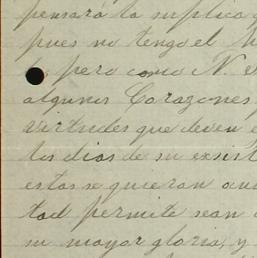 pensará la suplica
pues no tengo el
pero como N.
algunos Corazones
virtudes que deven
los dias de su exsist
estas se quieran
tad permite sean
su mayor gloria, y